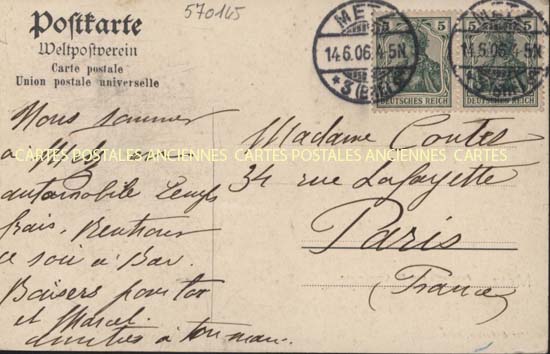 570145
Postkarte
Weltpostverein
Carte postale
Union postale universelle
METZ
14.6.06.4-5N
* 3 (Bhf) c
METZ
14.6.06.4-5N
5 5
DEUTSCHES REICH
5 5
DEUTSCHES REICH
Nous sommes
à Metz en
automobile temps
frais, Rentrons
ce soir à Bar.
Baisers pour toi
et Marcel.
amitiés à ton mari
Madame Contes
34 rue Lafayette
Paris
(France)
CARTES POSTALES ANCIENNES CARTES POSTALES ANCIENNES CARTES